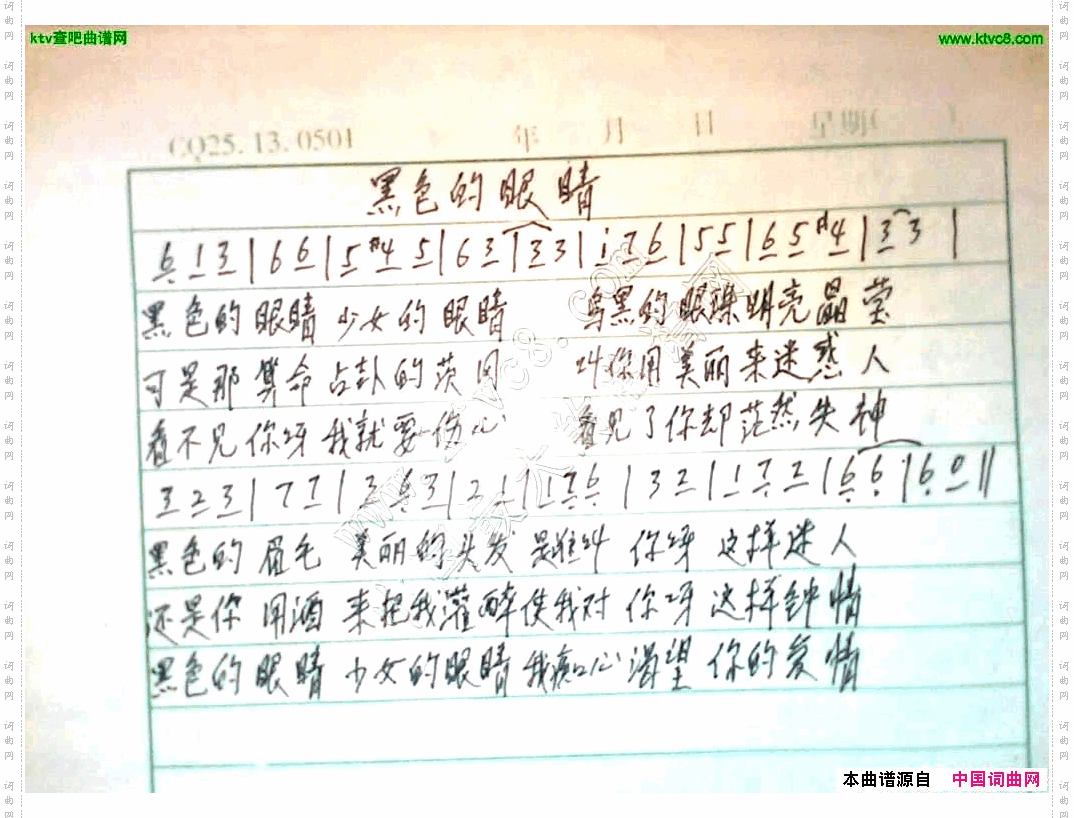 ktv查吧曲谱网 www.ktvc8.com
CQ25.13.0501 年 月 日 星期( )
黑色的眼睛
6 1 3 | 6 6 | 5 #4 5 | 6 3 | 3 3 | i 7 6 | 5 5 | 6 5 #4 | 3 3 |
黑色的眼睛 少女的眼睛 乌黑的眼珠明亮晶莹
可是那算命占卦的茨冈 叫你用美丽来迷惑人
看不见你呀我就要伤心 看见了你却茫然失神
3 2 3 | 7 7 | 3 6 3 | 2 1 | 1 7 6 | 3 2 | 1 7 2 | 6 6 | 6 0 ||
黑色的眉毛 美丽的头发 是谁叫 你呀 这样迷人
还是你 用酒 来把我灌醉使我对 你呀 这样钟情
黑色的眼睛 少女的眼睛 我痴心渴望 你的爱情
本曲谱源自 中国词曲网